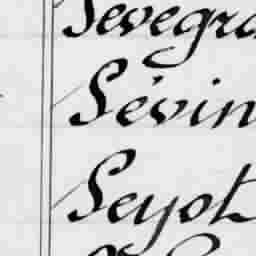 Sevegra
Sévin
Seyot